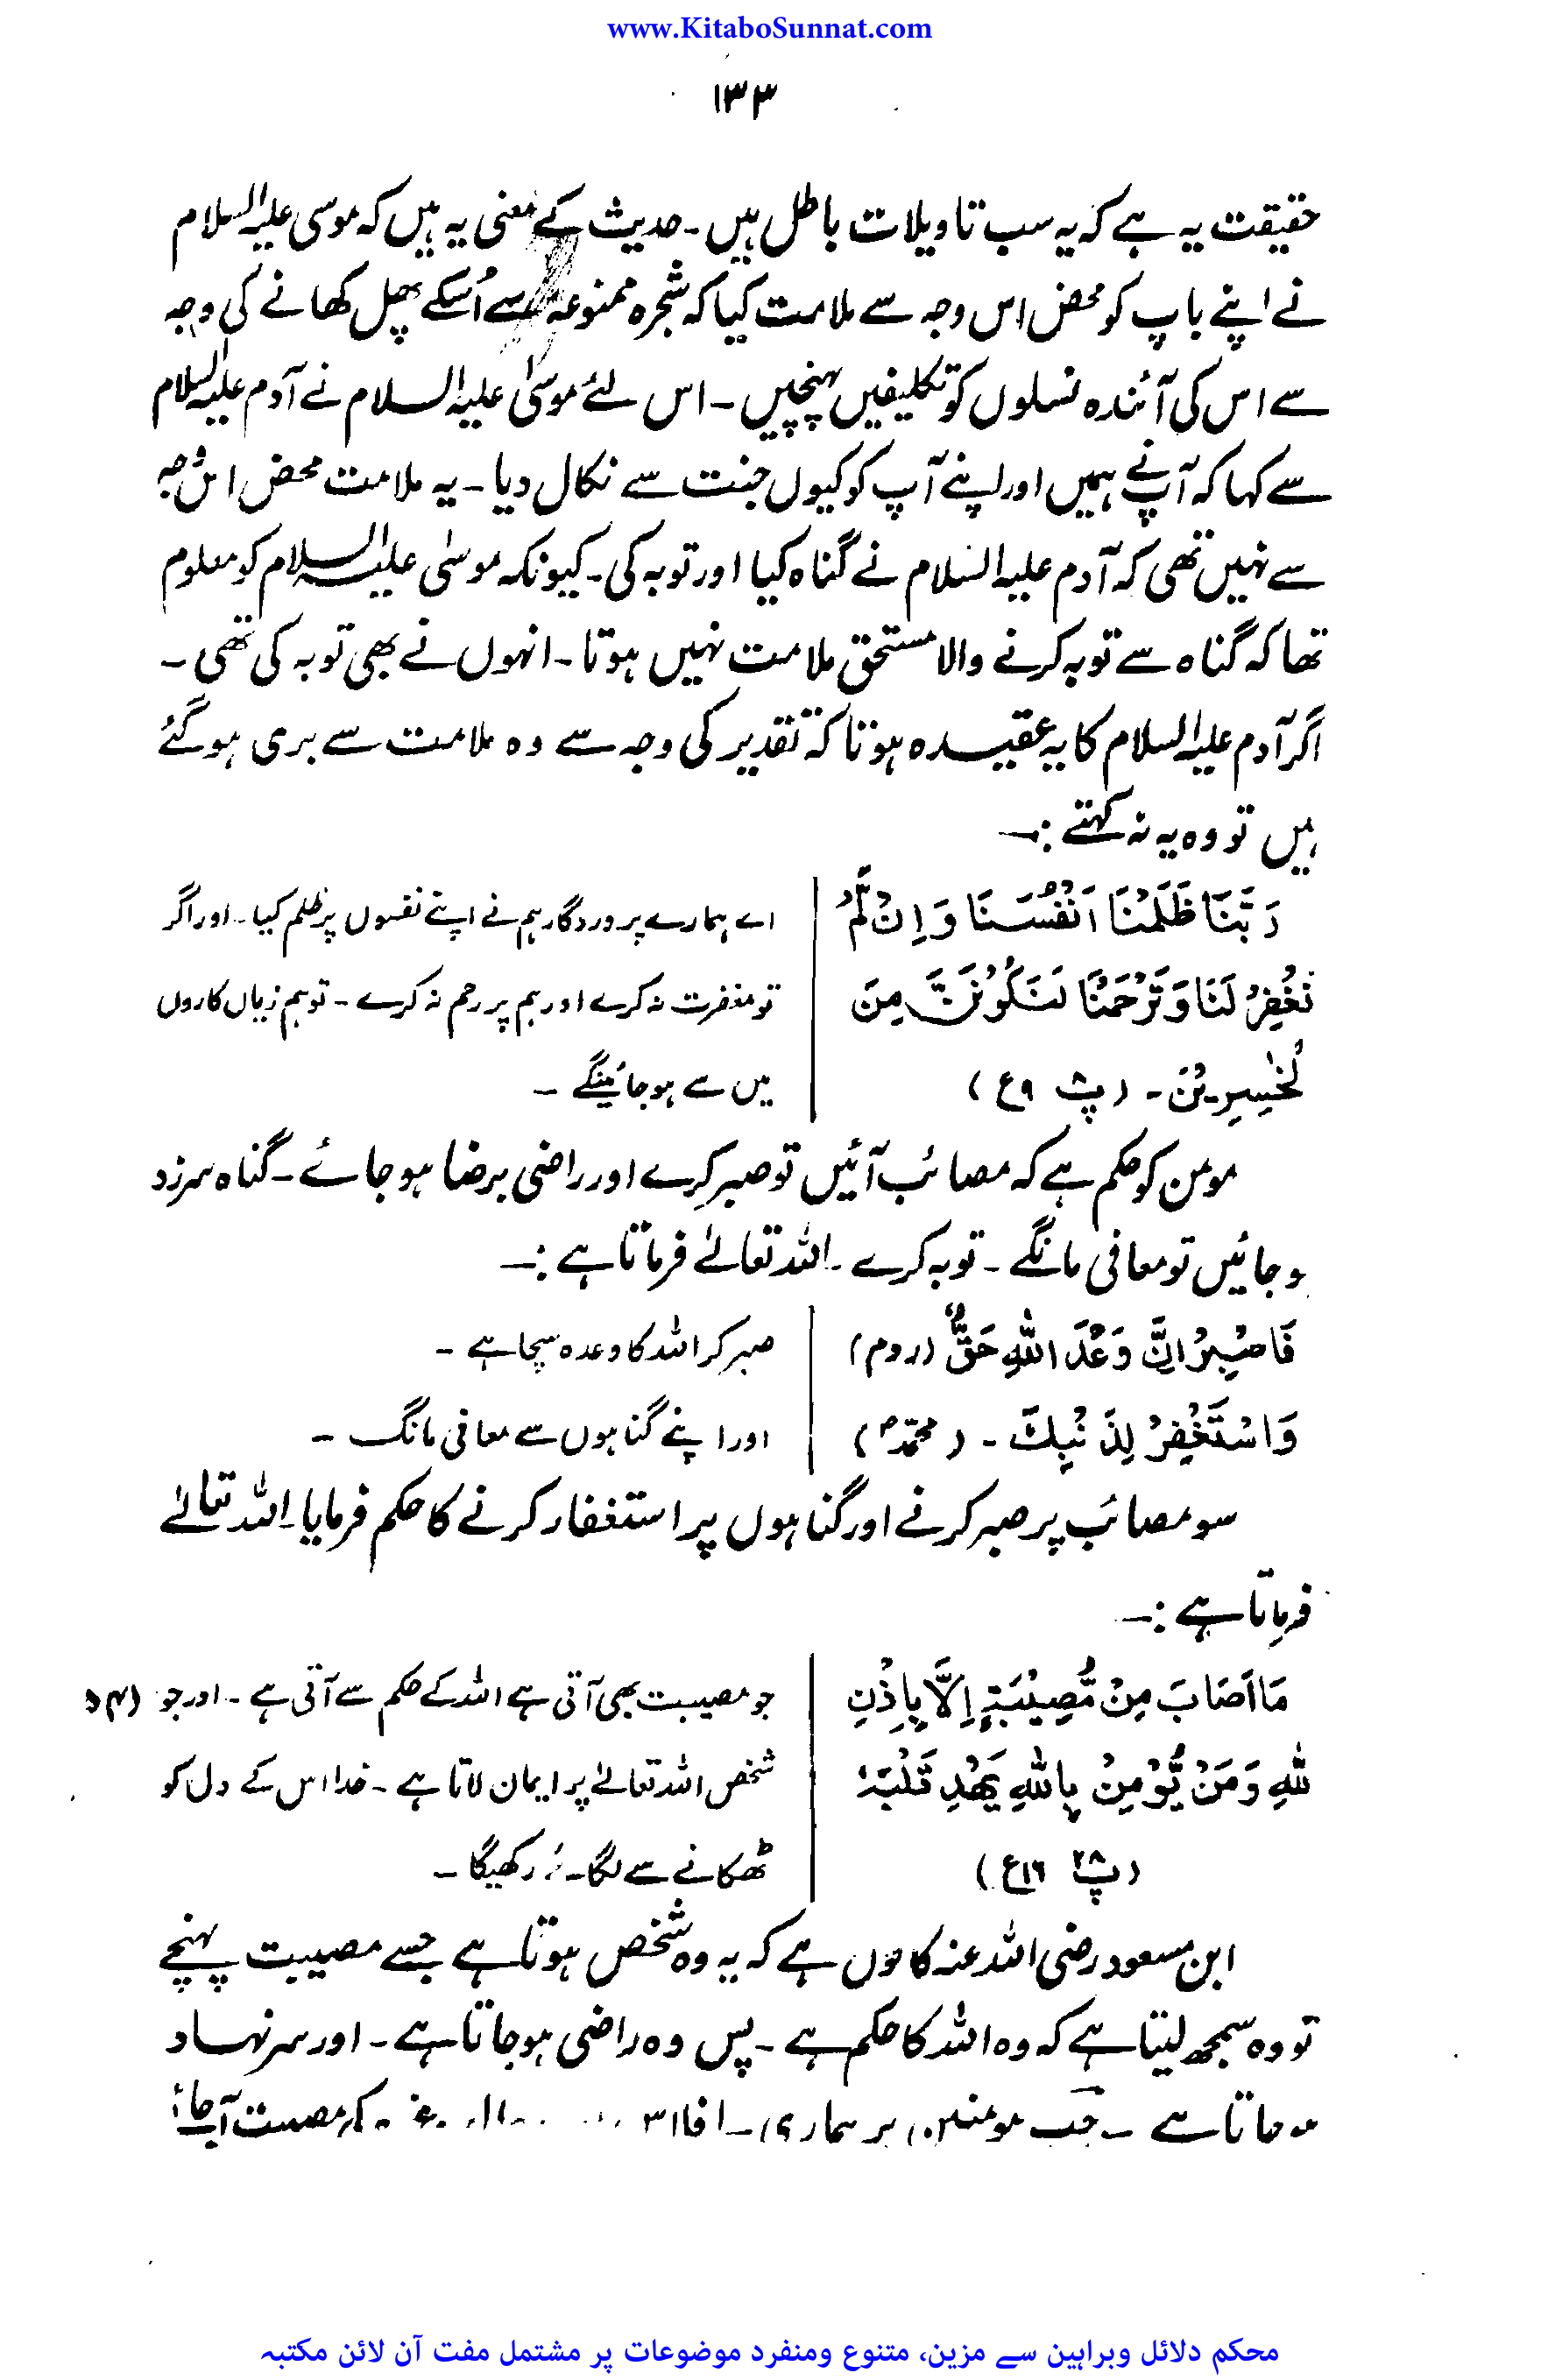 www.KitaboSunnat.com
۱۳۳
حقیقت یہ ہے کہ یہ سب تاویلات باطل ہیں۔ حدیث کے معنی یہ ہیں کہ موسی علیہ السلام
نے اپنے باپ کو محض اس وجہ سے ملامت کیا کہ شجرہ ممنوعہ سے اُسکے پھل کھانے کی وجہ
سے اس کی آئندہ نسلوں کو تکلیفیں پہنچیں۔ اس لئے موسیٰ علیہ السلام نے آدم علیہ السلام
سے کہا کہ آپ نے ہمیں اور اپنے آپ کو کیوں جنت سے نکال دیا۔ یہ ملامت محض اس وجہ
سے نہیں تھی کہ آدم علیہ السلام نے گناہ کیا اور توبہ کی۔ کیونکہ موسٰی علیہ السلام کو معلوم
تھا کہ گناہ سے توبہ کرنے والا مستحق ملامت نہیں ہوتا۔ انہوں نے بھی توبہ کی تھی۔
اگر آدم علیہ السلام کا یہ عقیدہ ہوتا کہ تقدیر کی وجہ سے وہ ملامت سے بری ہو گئے
ہیں تو وہ یہ نہ کہتے :۔
رَبَّنَا ظَلَمْنَا اَنْفُسَنَا وَاِنْ لَّمْ
تَغْفِرْ لَنَا وَتَرْحَمْنَا لَنَكُوْنَنَّ مِنَ
لْخٰسِرِيْنَ۔ (پ ۸ ع ۹)
اے ہمارے پروردگار ہم نے اپنے نفسوں پر ظلم کیا۔ اور اگر
تو مغفرت نہ کرے اور ہم پر رحم نہ کرے۔ تو ہم زیاں کاروں
میں سے ہو جائینگے۔
مومن کو حکم ہے کہ مصائب آئیں تو صبر کرے اور راضی برضا ہو جائے۔ گناہ سرزد
ہو جائیں تو معافی مانگے۔ توبہ کرے۔ اللہ تعالےٰ فرماتا ہے :۔
فَاصْبِرْ اِنَّ وَعْدَ اللهِ حَقٌّ (روم)
صبر کر اللہ کا وعدہ سچا ہے۔
وَاسْتَغْفِرْ لِذَنْبِكَ۔ (محمدؐ)
اور اپنے گناہوں سے معافی مانگ۔
سو مصائب پر صبر کرنے اور گناہوں پر استغفار کرنے کا حکم فرمایا۔ اللہ تعالےٰ
فرماتا ہے :۔
مَا اَصَابَ مِنْ مُّصِيْبَةٍ اِلَّا بِاِذْنِ
للهِ وَمَنْ يُّؤْمِنْ بِاللهِ يَهْدِ قَلْبَهٗ
(پ ۲۸ ع ۱۶)
جو مصیبت بھی آتی ہے اللہ کے حکم سے آتی ہے۔ اور جو
شخص اللہ تعالےٰ پر ایمان لاتا ہے۔ خدا اس کے دل کو
ٹھکانے سے لگائے رکھیگا۔
ابن مسعود رضی اللہ عنہ کا قول ہے کہ یہ وہ شخص ہوتا ہے جسے مصیبت پہنچے
تو وہ سمجھ لیتا ہے کہ وہ اللہ کا حکم ہے۔ پس وہ راضی ہو جاتا ہے۔ اور سر نہاد
ہو جاتا ہے۔ جب مومنین پر بیماری۔ مصیبت آجائے
محکم دلائل وبراہین سے مزین، متنوع ومنفرد موضوعات پر مشتمل مفت آن لائن مکتبہ